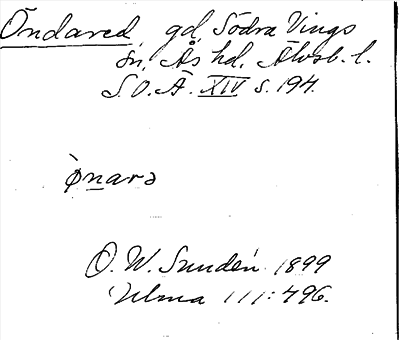 Öndared, gd, Södra Vings
sn, Ås hd, Älvsb. l.
S.O.Ä. XIV s. 194.
ø̀narə
O. W. Sundén 1899
Ulma 111:496.